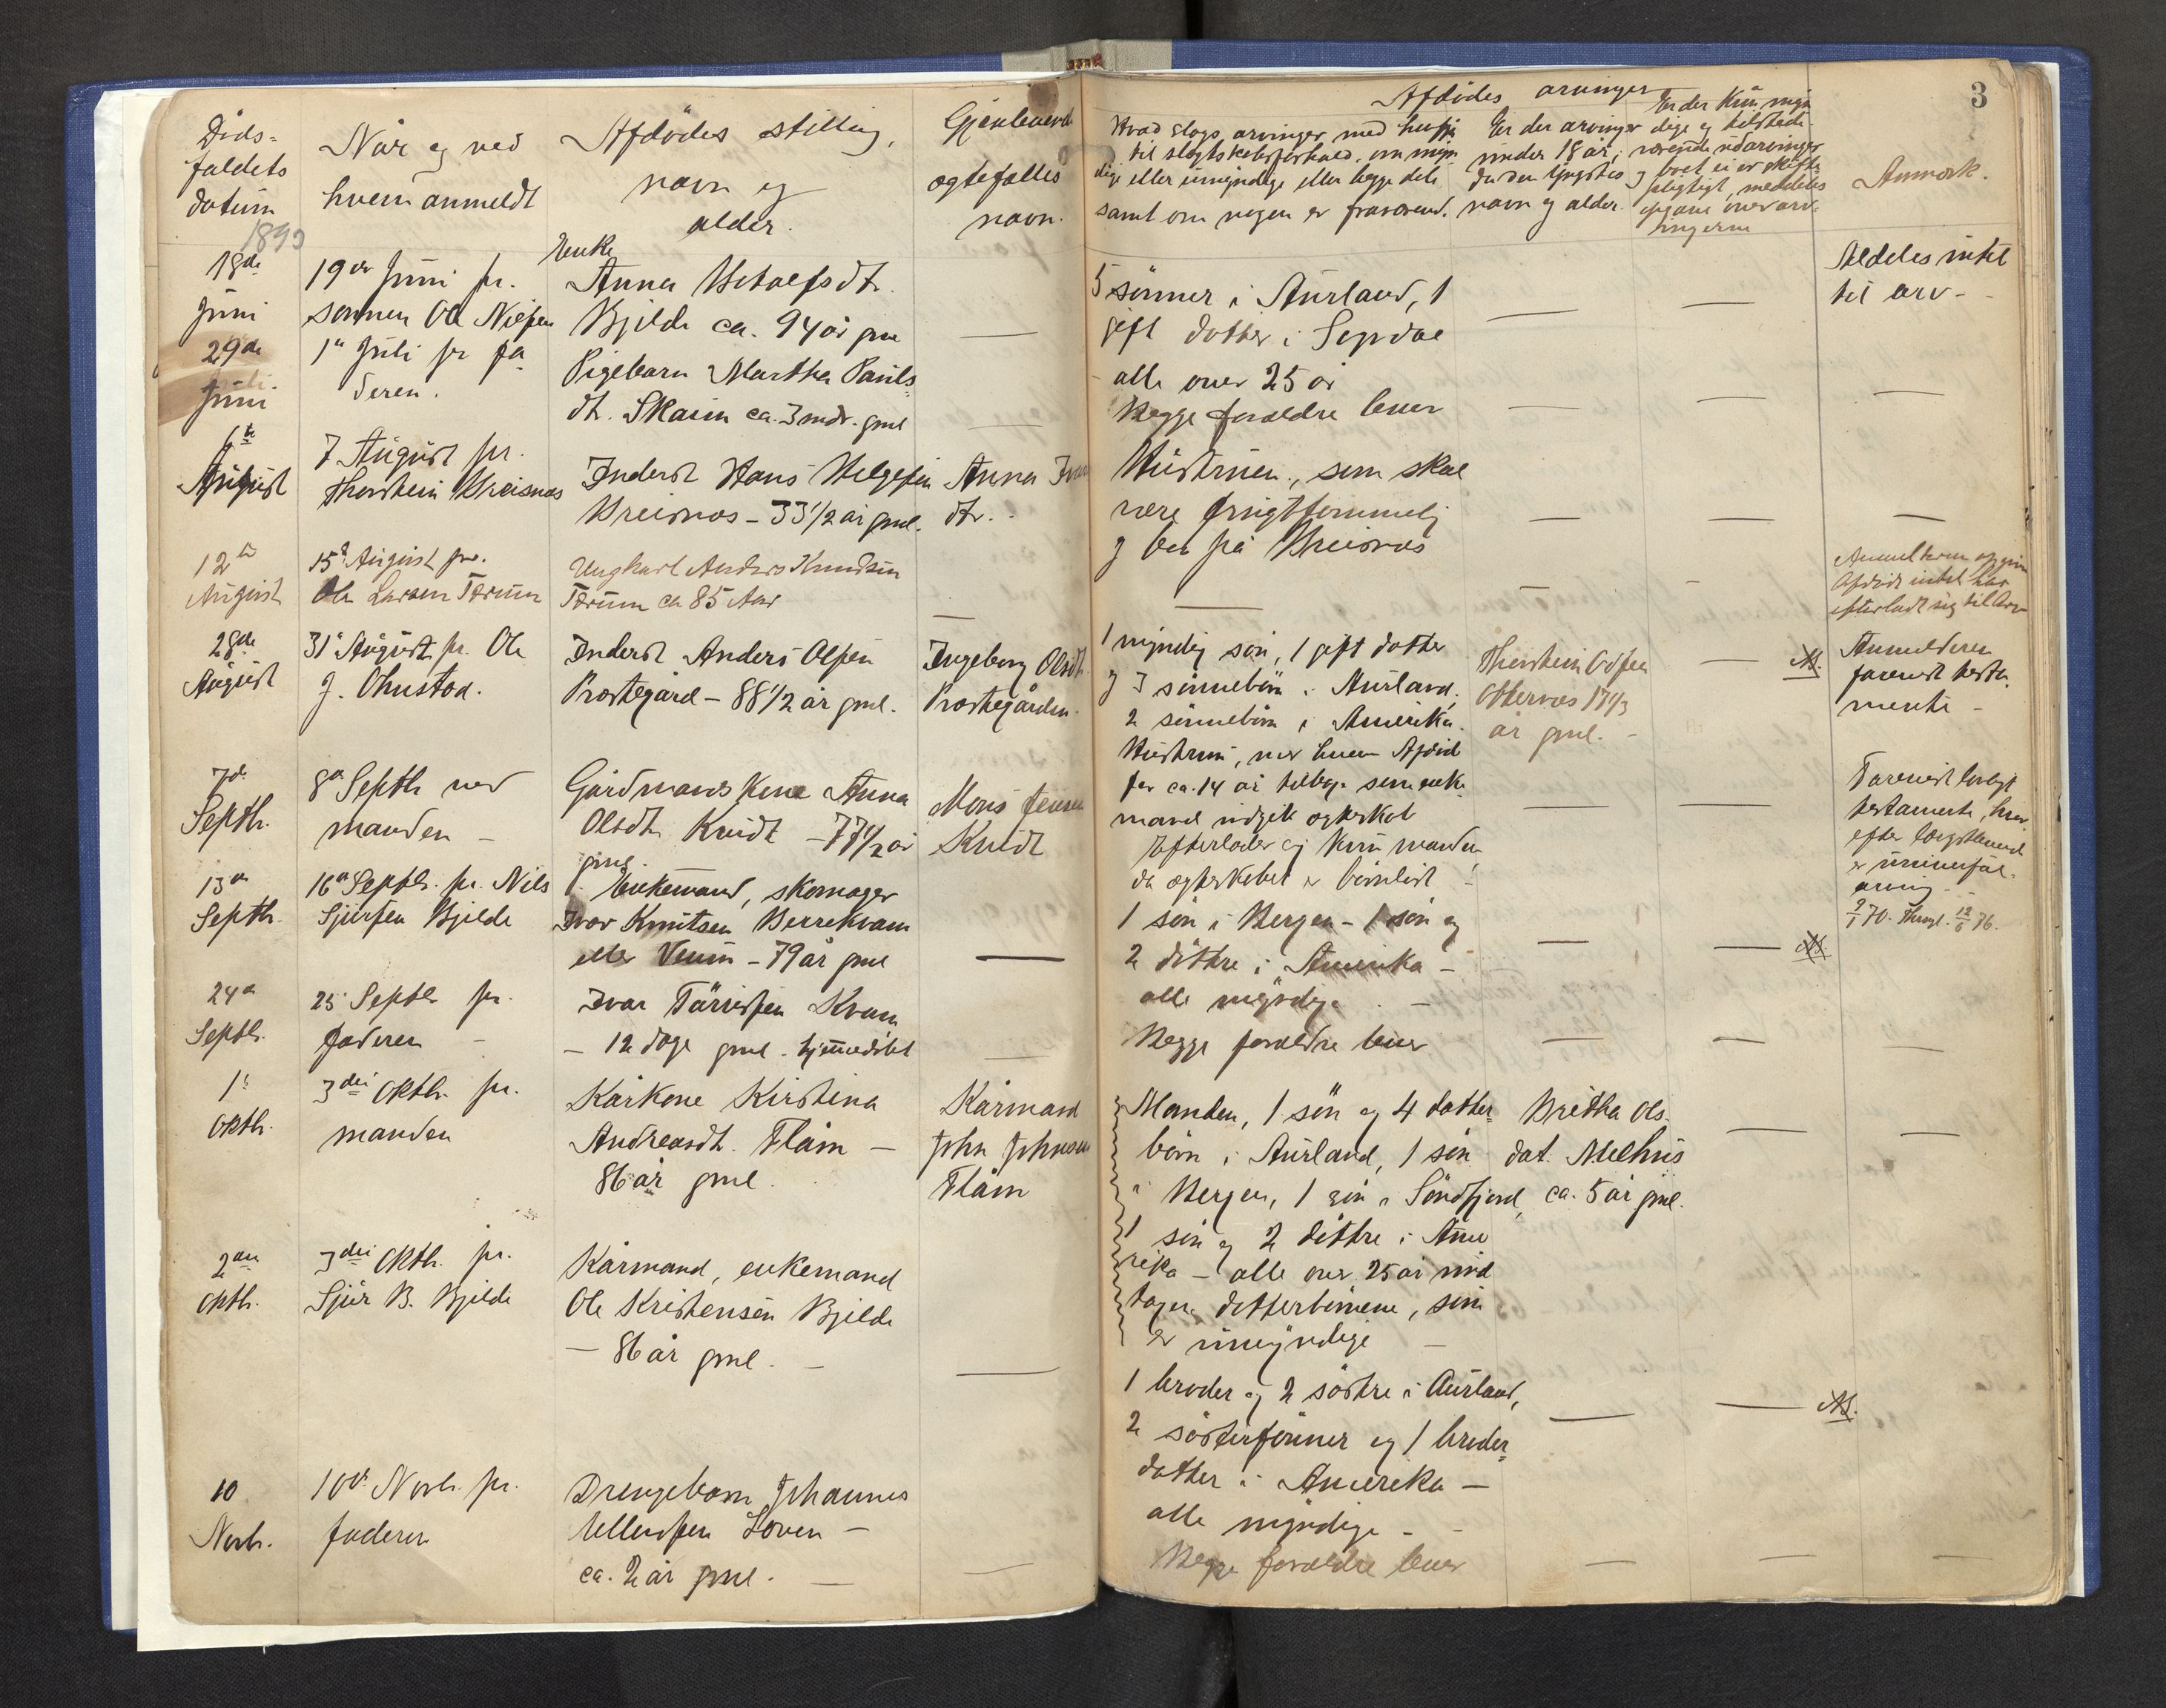 3
Døds-
faldets
datum
1893
Når og ved
hvem anmeldt
Afdödes stilling,
navn og
alder.
Gjenlevende
ægtefælles
navn.
Afdödes arvinger
Hvad slags arvinger med hensyn
til slægtskabsforhold, om myn
dige eller umyndige eller begge dele
samt om nogen er fraværend.
Er der arvinger
under 18 år,
da den yngstes
navn og alder.
Er der kun myn
dige og tilstede
værende udarvinger
og boet ei er skifte
pligtigt, meddeles
opgave over arv-
ingerne
Anmærk.
18de
Juni
19de Juni pr.
sønnen Ole
Enke
Anna
Bjelde ca. 94 år gml
5 sønner i Aurland, 1
gift datter i Sogndal
alle over 25 år
Aldeles intet
til arv -
29de
Juni
1ste Juli pr fa
deren.
Pigebarn Martha Pauls
dt. Skaim ca. 3 mdr. gml
Begge forældre lever
6te
August
7 August pr.
Thorstein Breisnæs
Inderst Hans Helgesen
Breisnæs - 33 1/2 år gml.
Anna
dtr.
Hustruen, som skal
være frugtsommelig
og bor på Breisnæs
12te
August
15de August pr.
Ole Larsen Tærum
Ungkarl Anders Knudsen
Tærum ca 85 Aar
Anmelderen opgiver
Afdøde intet har
efterladt sig til Arv
28de
August
31te August pr. Ole
J. Ohnstad.
Inderst Anders Olsen
Prestegård - 88 1/2 år gml.
Ingeborg Olsdt.
Prestegården.
1 myndig søn, 1 gift datter
og 3 sønnebørn i Aurland,
2 sønnebørn i Amerika.
Hustru, med hvem Afdød
for ca. 14 år tilbage som enke
mand indgik ægteskab
Thorstein
Otternæs 17 1/3
år gml. -
Anmelderen
forevist testa
mente -
7de
Septbr.
8de Septbr ved
manden -
Gårdmandskone Anna
Olsdtr Kvidt - 77 1/2 år
gml.
Mons Jensen
Kvidt
Efterlader sig kun manden,
da ægteskabet er børnløst -
Forevist lovligt
testamente, hvor
efter længstlevende
er universal-
arving -
13de
Septbr.
16de Septbr. pr. Nils
Sjursen Bjelde
Enkemand, skomager
Ivar Knutsen Berrekvam
eller Venum - 79 år gml
1 søn i Bergen - 1 søn og
2 döttre i Amerika -
alle myndige -
24de
Septbr.
25 Septbr pr.
faderen -
Ivar Kvam
- 12 dage gml. hjemmedøbt
Begge forældre lever
1ste
Oktbr.
3die Oktbr. pr.
manden
Kårkone Kirstina
Andreasdt. Flåm -
86 år gml.
Kårmand
John Johnsen
Flåm
Manden, 1 sön og 4 datter
børn i Aurland, 1 søn
i Bergen, 1 søn i Søndfjord,
1 søn og 2 döttre i Ame
rika - alle over 25 år und
tagen datterbørnene, som
er umyndige -
Britha Ols-
dat. Melhus
ca. 5 år gml.
2den
Oktbr.
3die Oktbr. pr.
Sjur B. Bjelde
Kårmand, enkemand
Ole Kristensen Bjelde
- 86 år gml. -
1 broder og 2 søstre i Aurland,
2 søstersønner og 1 broder
datter i Amerika -
alle myndige -
10
Novbr.
10de Novbr. pr.
faderen
Drengebarn Johannes
Ellendsen Loven -
ca. 2 år gml. -
Begge forældre lever